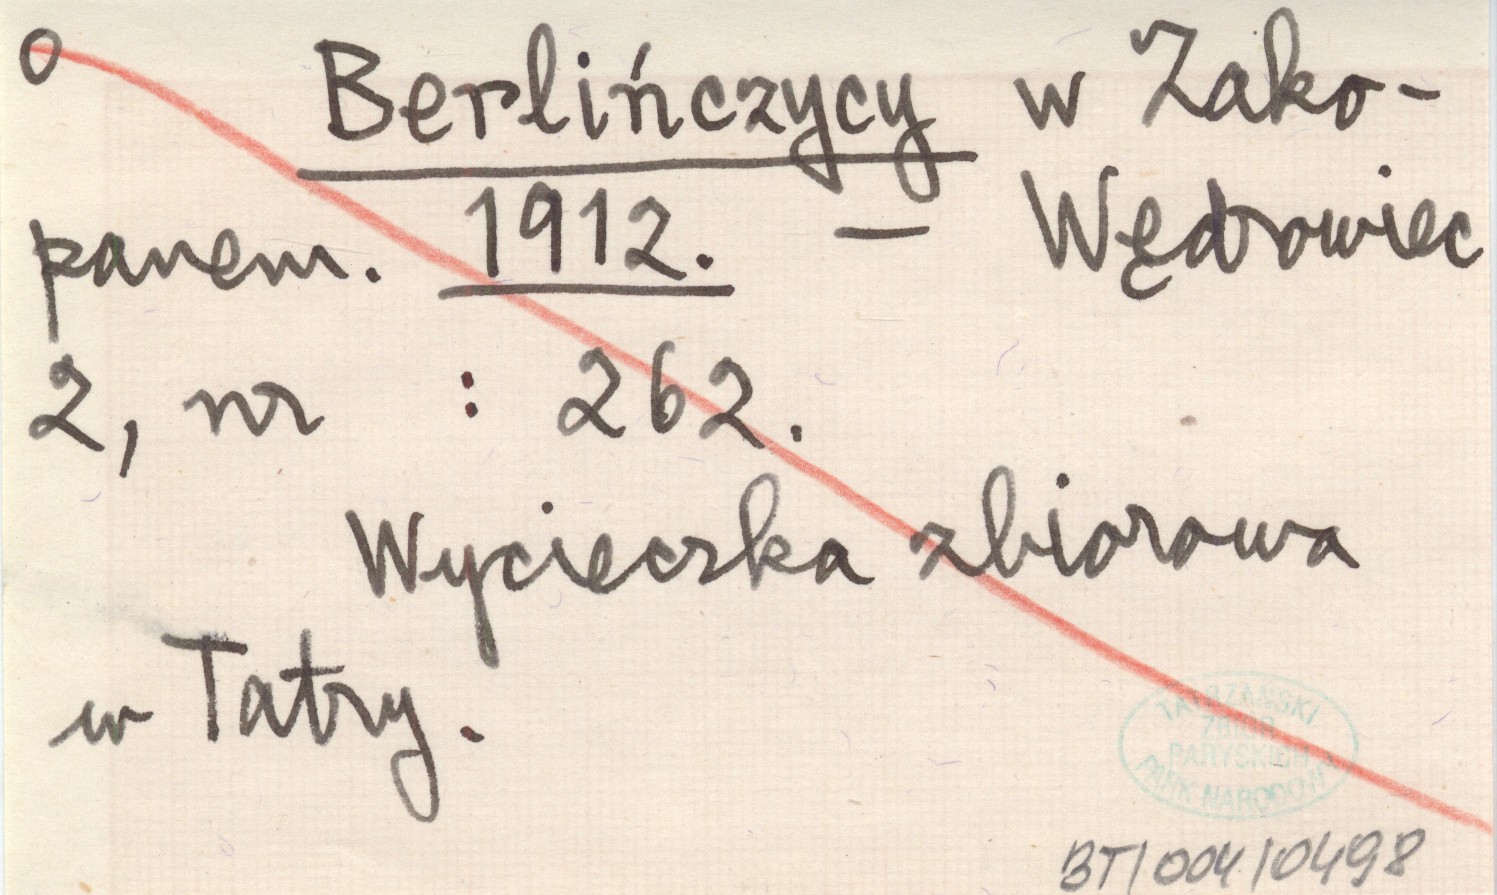 O Berlińczycy w Zako-
panem. 1912. — Wędrowiec
2, nr : 262.
Wycieczka zbiorowa
w Tatry.
TATRZAŃSKI
ZBIÓR
PARYSKICH
PARK NARODOWY
BT/004/0498